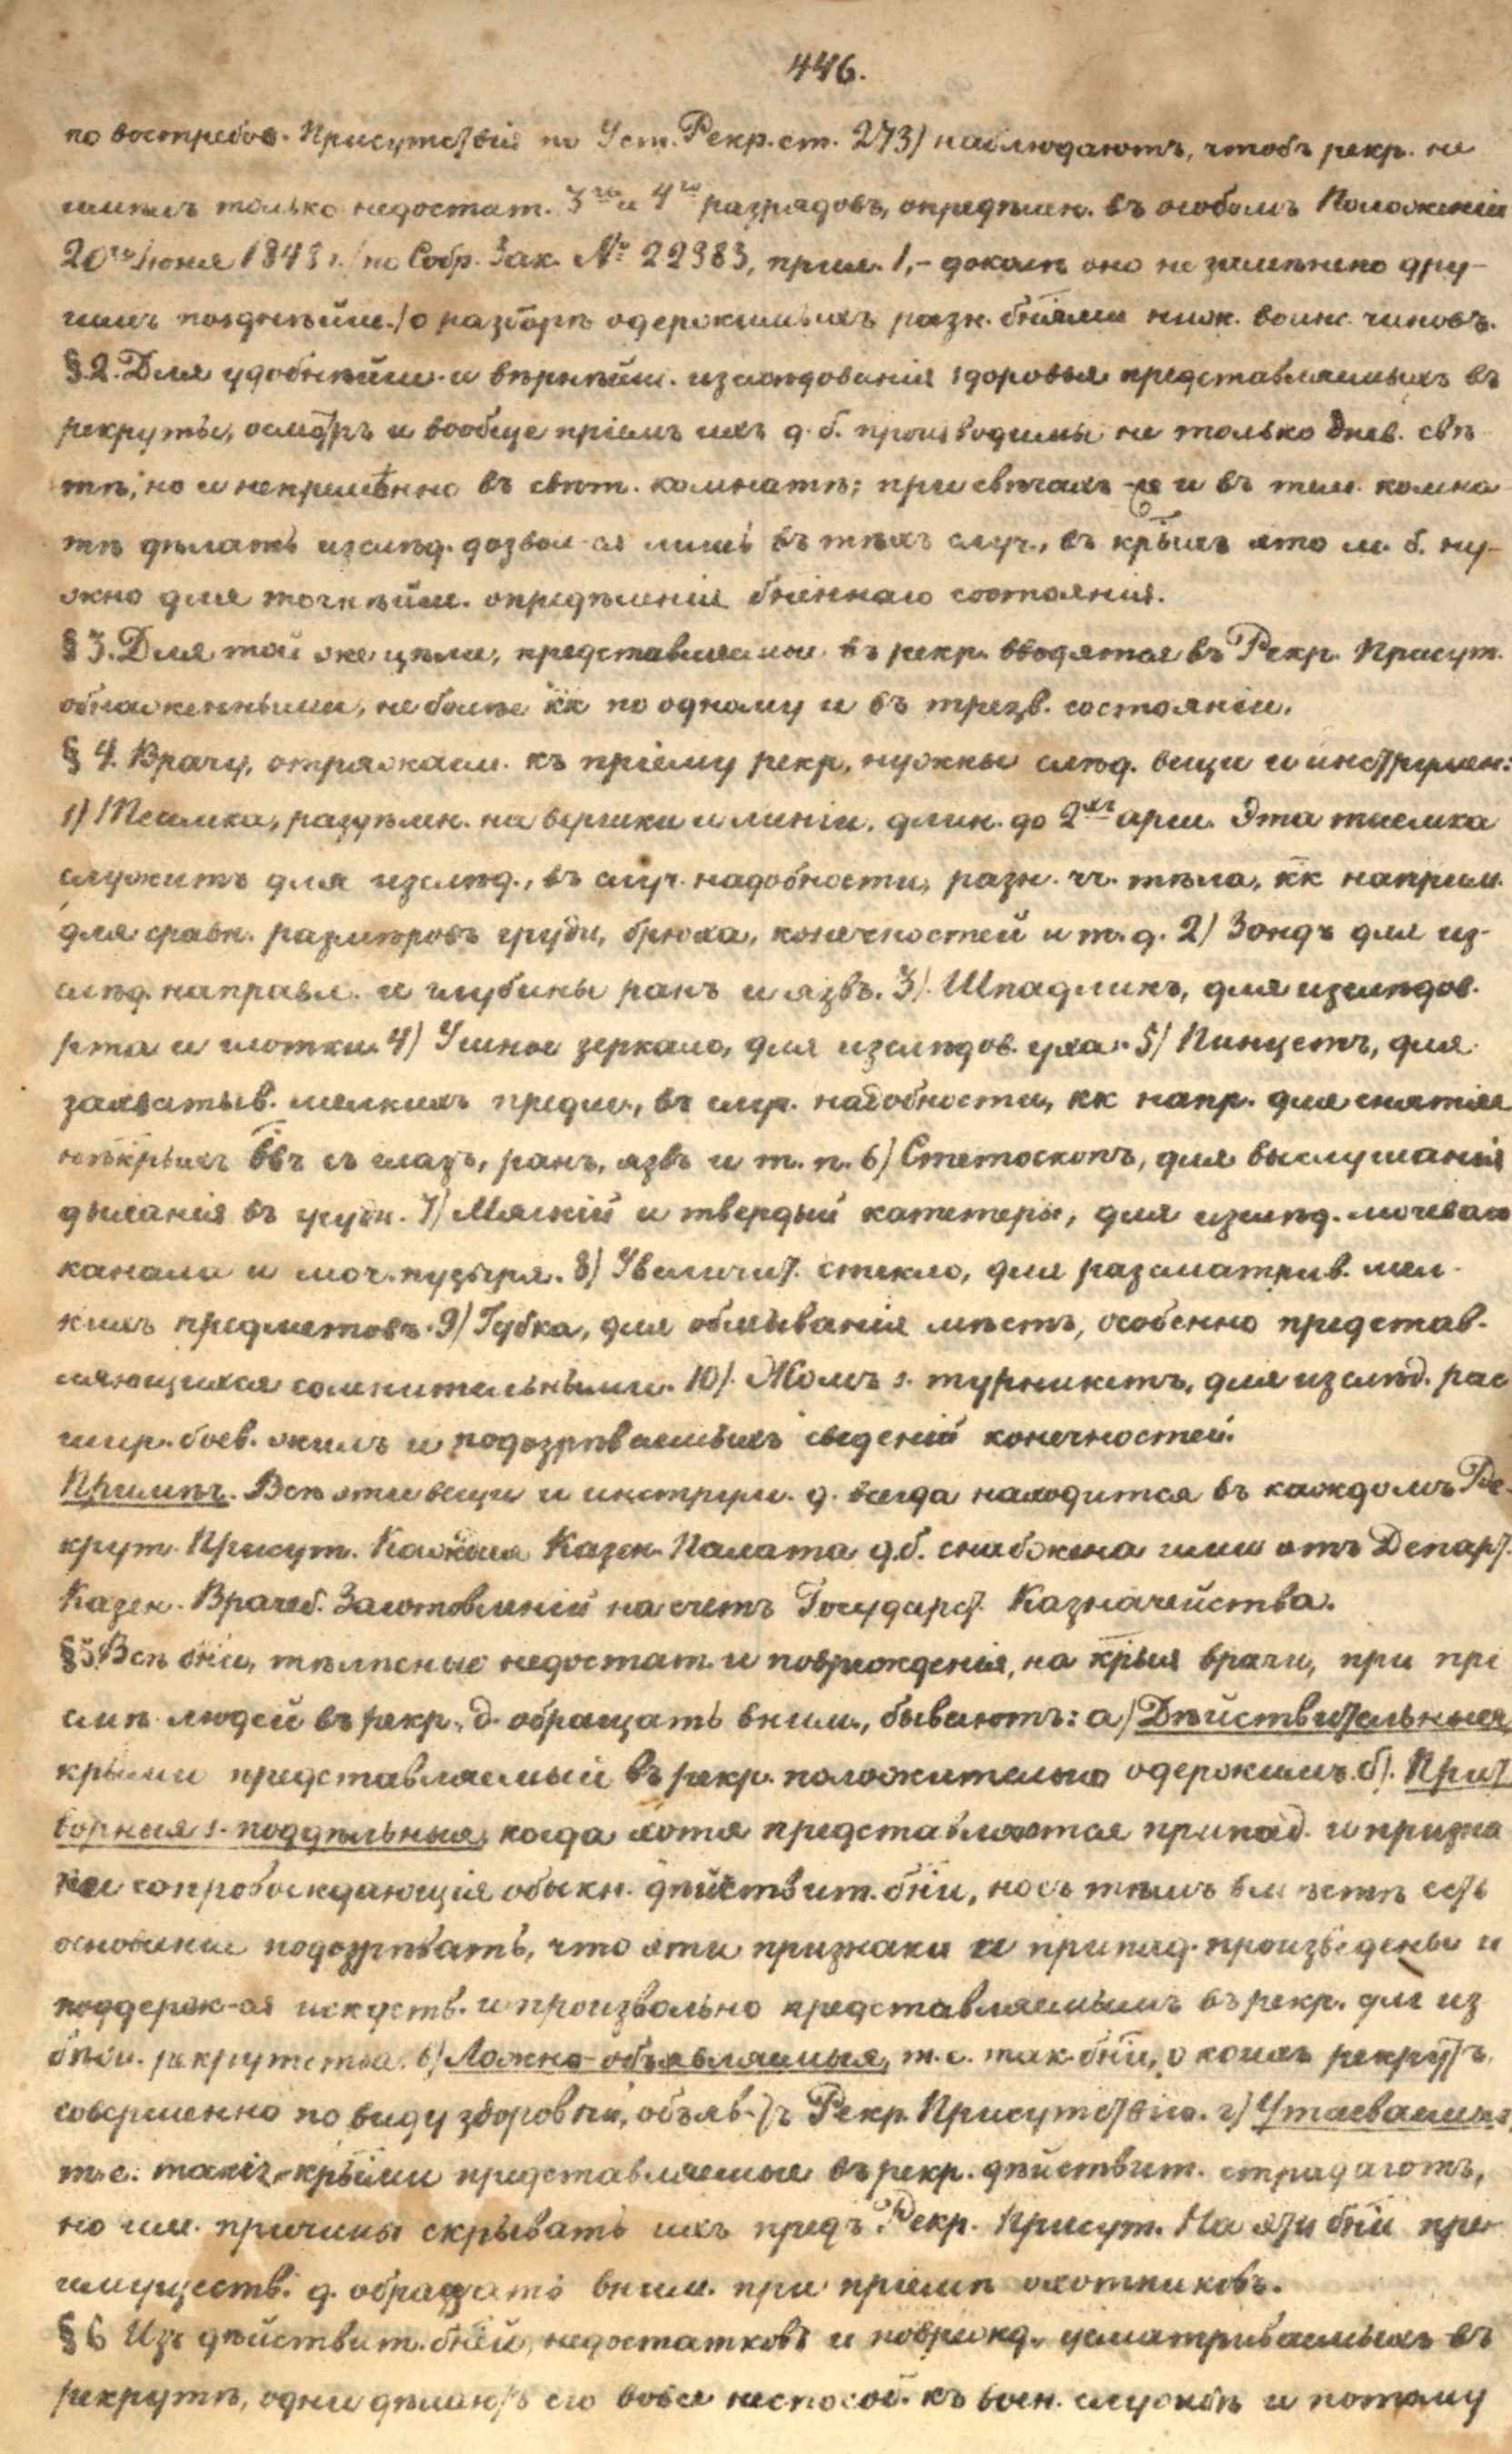 446.
по востребов. Присутствія по Уст. Рекр. ст. 273) наблюдаютъ, чтобъ рекр. не
имѣлъ только недостат. 3го и 4го разрядовъ, опредѣлен. въ особомъ Положеніи
20го Іюня 1848 г. /по Собр. Зак. № 22383, прил. 1,- доколѣ оно не замѣнено дру-
гимъ позднѣйш./ о разборѣ одержимыхъ разн. бнями нижн. воинс. чиновъ.
§.2. Для удобнѣйш. и вѣрнѣйш. изслѣдованія здоровья представляемыхъ въ
рекруты, осмотръ и вообще пріемъ ихъ д. б. производимы не только днев. свѣ-
тѣ, но и непремѣнно въ свѣт. комнатѣ; при свѣчахъ же и въ тем. комна-
тѣ дѣлать изслѣд. дозвол-ся лишь въ тѣхъ случ., въ крыхъ это м. б. ну-
жно для точнѣйш. опредѣленія бненнаго состоянія.
§ 3. Для той же цѣли, представляемые въ рекр. вводятся въ Рекр. Присут.
обнаженными, не болѣе кк по одному и въ трезв. состояніи.
§ 4. Врачу, отряжаем. къ пріему рекр., нужны слѣд. вещи и инструмен:
1) Тесьмка, раздѣлен. на вершки и линіи, длин. до 2хъ арш. Эта тьсемка
служитъ для изслѣд., въ случ. надобности, разн. чч. тѣла, кк наприм.
для сравн. размѣровъ груди, брюха, конечностей и т. д. 2) Зондъ для из-
слѣд. направл. и глубины ранъ и язвъ. 3) Шпадликъ, для изслѣдов.
рта и глотки. 4) Ушное зеркало, для изслѣдов. уха. 5) Пинцетъ, для
захватыв. мелкихъ предм., въ случ. надобности, кк напр. для снятія
нѣкрыхъ ввъ съ глазъ, ранъ, язвъ и т. п. 6) Стетоскопъ, для выслушанія
дыханія въ груди. 7) Мягкій и твердый катетеры, для изслѣд. мочеваго
канала и моч. пузыря. 8) Увеличит. стекло, для разсматрив. мел-
кихъ предметовъ. 9) Губка, для обмыванія мѣстъ, особенно представ-
ляющихся сомнительными. 10). Жомъ s. турникетъ, для изслѣд. рас
шир. боев. жилъ и подозрѣваемыхъ сведеній конечностей.
Примѣч. Всѣ эти вещи и инструм. д. всегда находится въ каждомъ Ре-
крут. Присут. Каждая Казен. Палата д.б. снабжена ими отъ Департ.
Казен. Врачеб. Заготовленій на счетъ Государст. Казначейства.
§5. Всѣ бни, тѣлесные недостат. и поврежденія, на крыя врачи, при прі
емѣ людей въ рекр., д. обращать вним., бываютъ: а) Дѣйствительныя,
крыми представляемый въ рекр. положительно одержимъ. б). Прит
ворныя s. поддѣльныя, когда хотя представляются припад. и призна
ки сопровождающія обыкн. дѣйствит. бни, но съ тѣмъ вмѣстѣ есть
основаніе подозрѣвать, что эти признаки и припад. произведены и
поддерж-ся искуств. и произвольно представляемымъ въ рекр. для из
бѣж. рекрутства. в) Ложно-объявляемыя, т. е. так. бни, о коихъ рекрутъ,
совершенно по виду здоровый, объяв-тъ Рекр. Присутствію. г) Утаеваемыя,
т. е. такія, крыми представляемые въ рекр. дѣйствит. страдаютъ,
но им. причины скрывать ихъ предъ Рекр. Присут. На эти бни пре-
имуществ. д. обращать вним. при пріемѣ охотниковъ.
§ 6 Изъ дѣйствит. бней, недостатковъ и поврежд. усматриваемыхъ въ
рекрутѣ, одни дѣлаютъ его вовсе неспособ. къ воен. службѣ и потому